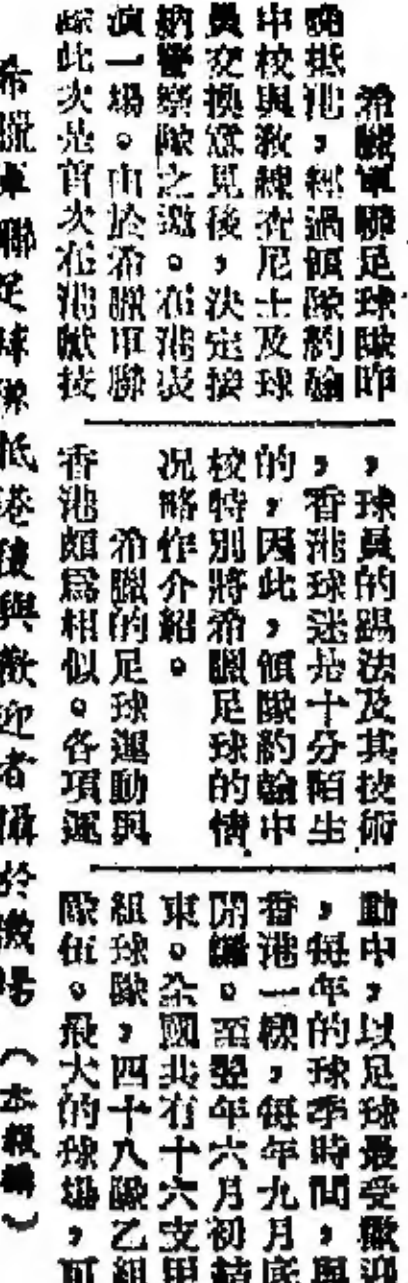 希臘軍聯足球隊昨
晚抵港，經過領隊約翰
中校與教練查尼士及球
員交換意見後，決定接
納警察隊之邀。在港表
演一場。由於希臘軍聯
隊此次是首次在港獻技
，球員的踢法及其技術
，香港球迷是十分陌生
的，因此，領隊約翰中
校特別將希臘足球的情
况略作介紹。
希臘的足球運動與
香港頗爲相似。各項運
動中，以足球最受歡迎
，每年的球季時間，與
香港一樣，每年九月底
開鑼。至翌年六月初結
束。全國共有十六支甲
組球隊，四十八隊乙組
隊伍。最大的球場，可
希臘軍聯足球隊抵港後與歡迎者攝於機場（本報攝）